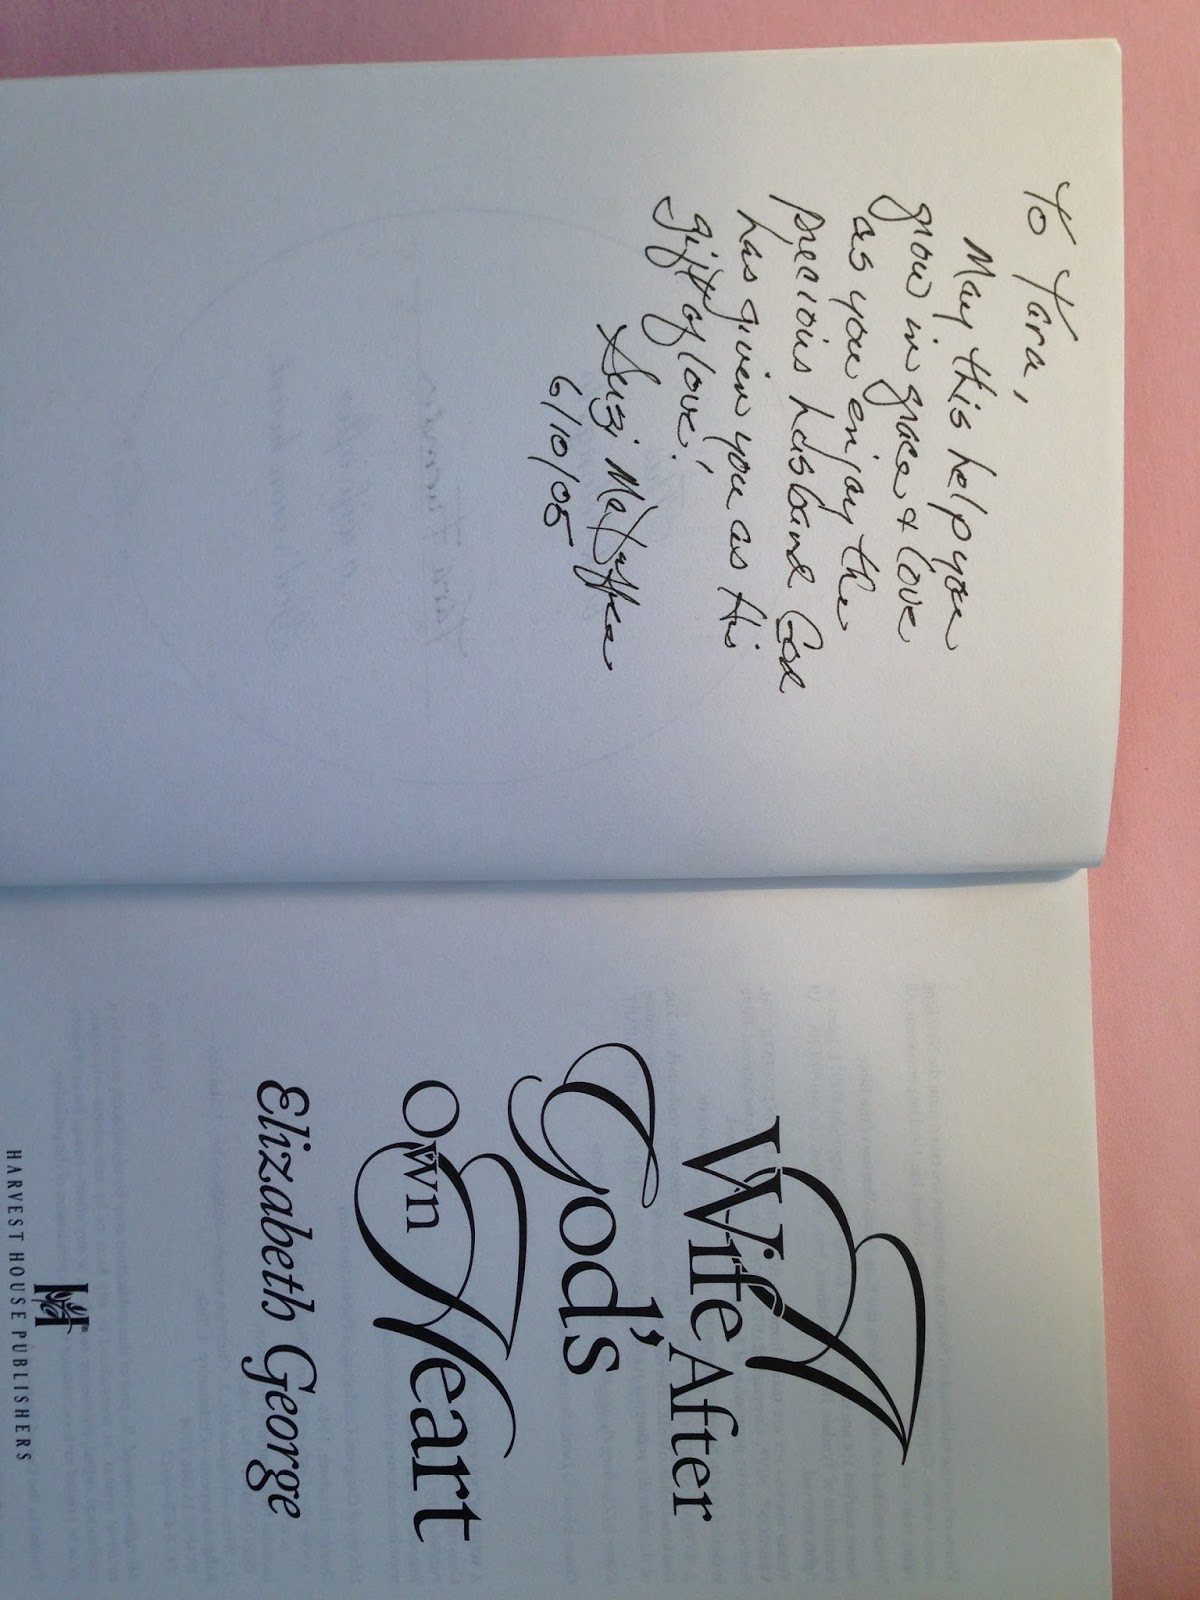 To Yara,
May this help you
grow in grace & love
as you enjoy the
precious husband God
has given you as His
gift of love!
Susi
6/10/05
A
Wife After
God's
Own Heart
Elizabeth George
HARVEST HOUSE PUBLISHERS